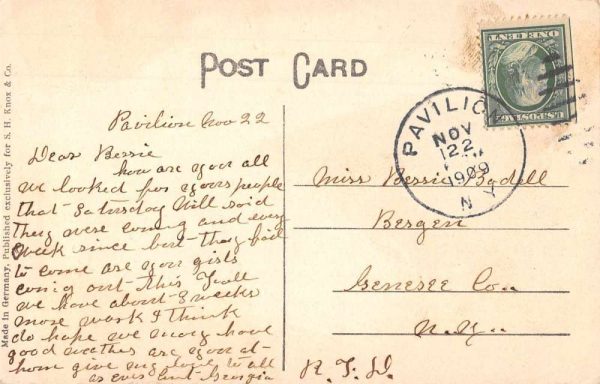 POST CARD
Made in Germany, Published exclusively for S. H. Knox & Co.
Pavilion Nov 22
Dear Bessie
how are you all
we looked for yours people
that Saturday Will said
they were coming and every
week since but they fail
to come are you girls
comig out this Fall
we have about 3 weeks
more work I think
do hope we may have
good weather are you at
home give my love to all
as ever Aunt Georgia
PAVILION
NOV
22
1909
N Y
U.S. POSTAGE
ONE CENT
Miss Bessie Bodell
Bergen
Genesee Co..
N. Y.
R. F. D.